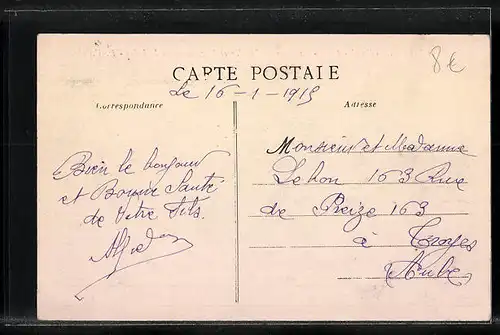 8€
CARTE POSTALE
Le 16-1-1915
Correspondance
Adresse
Bien le bonjour
et Bonne Santé
de Votre fils
Alfred
Monsieur et Madame
Lebon 163 Rue
de Preize 163
à Troyes
Aube